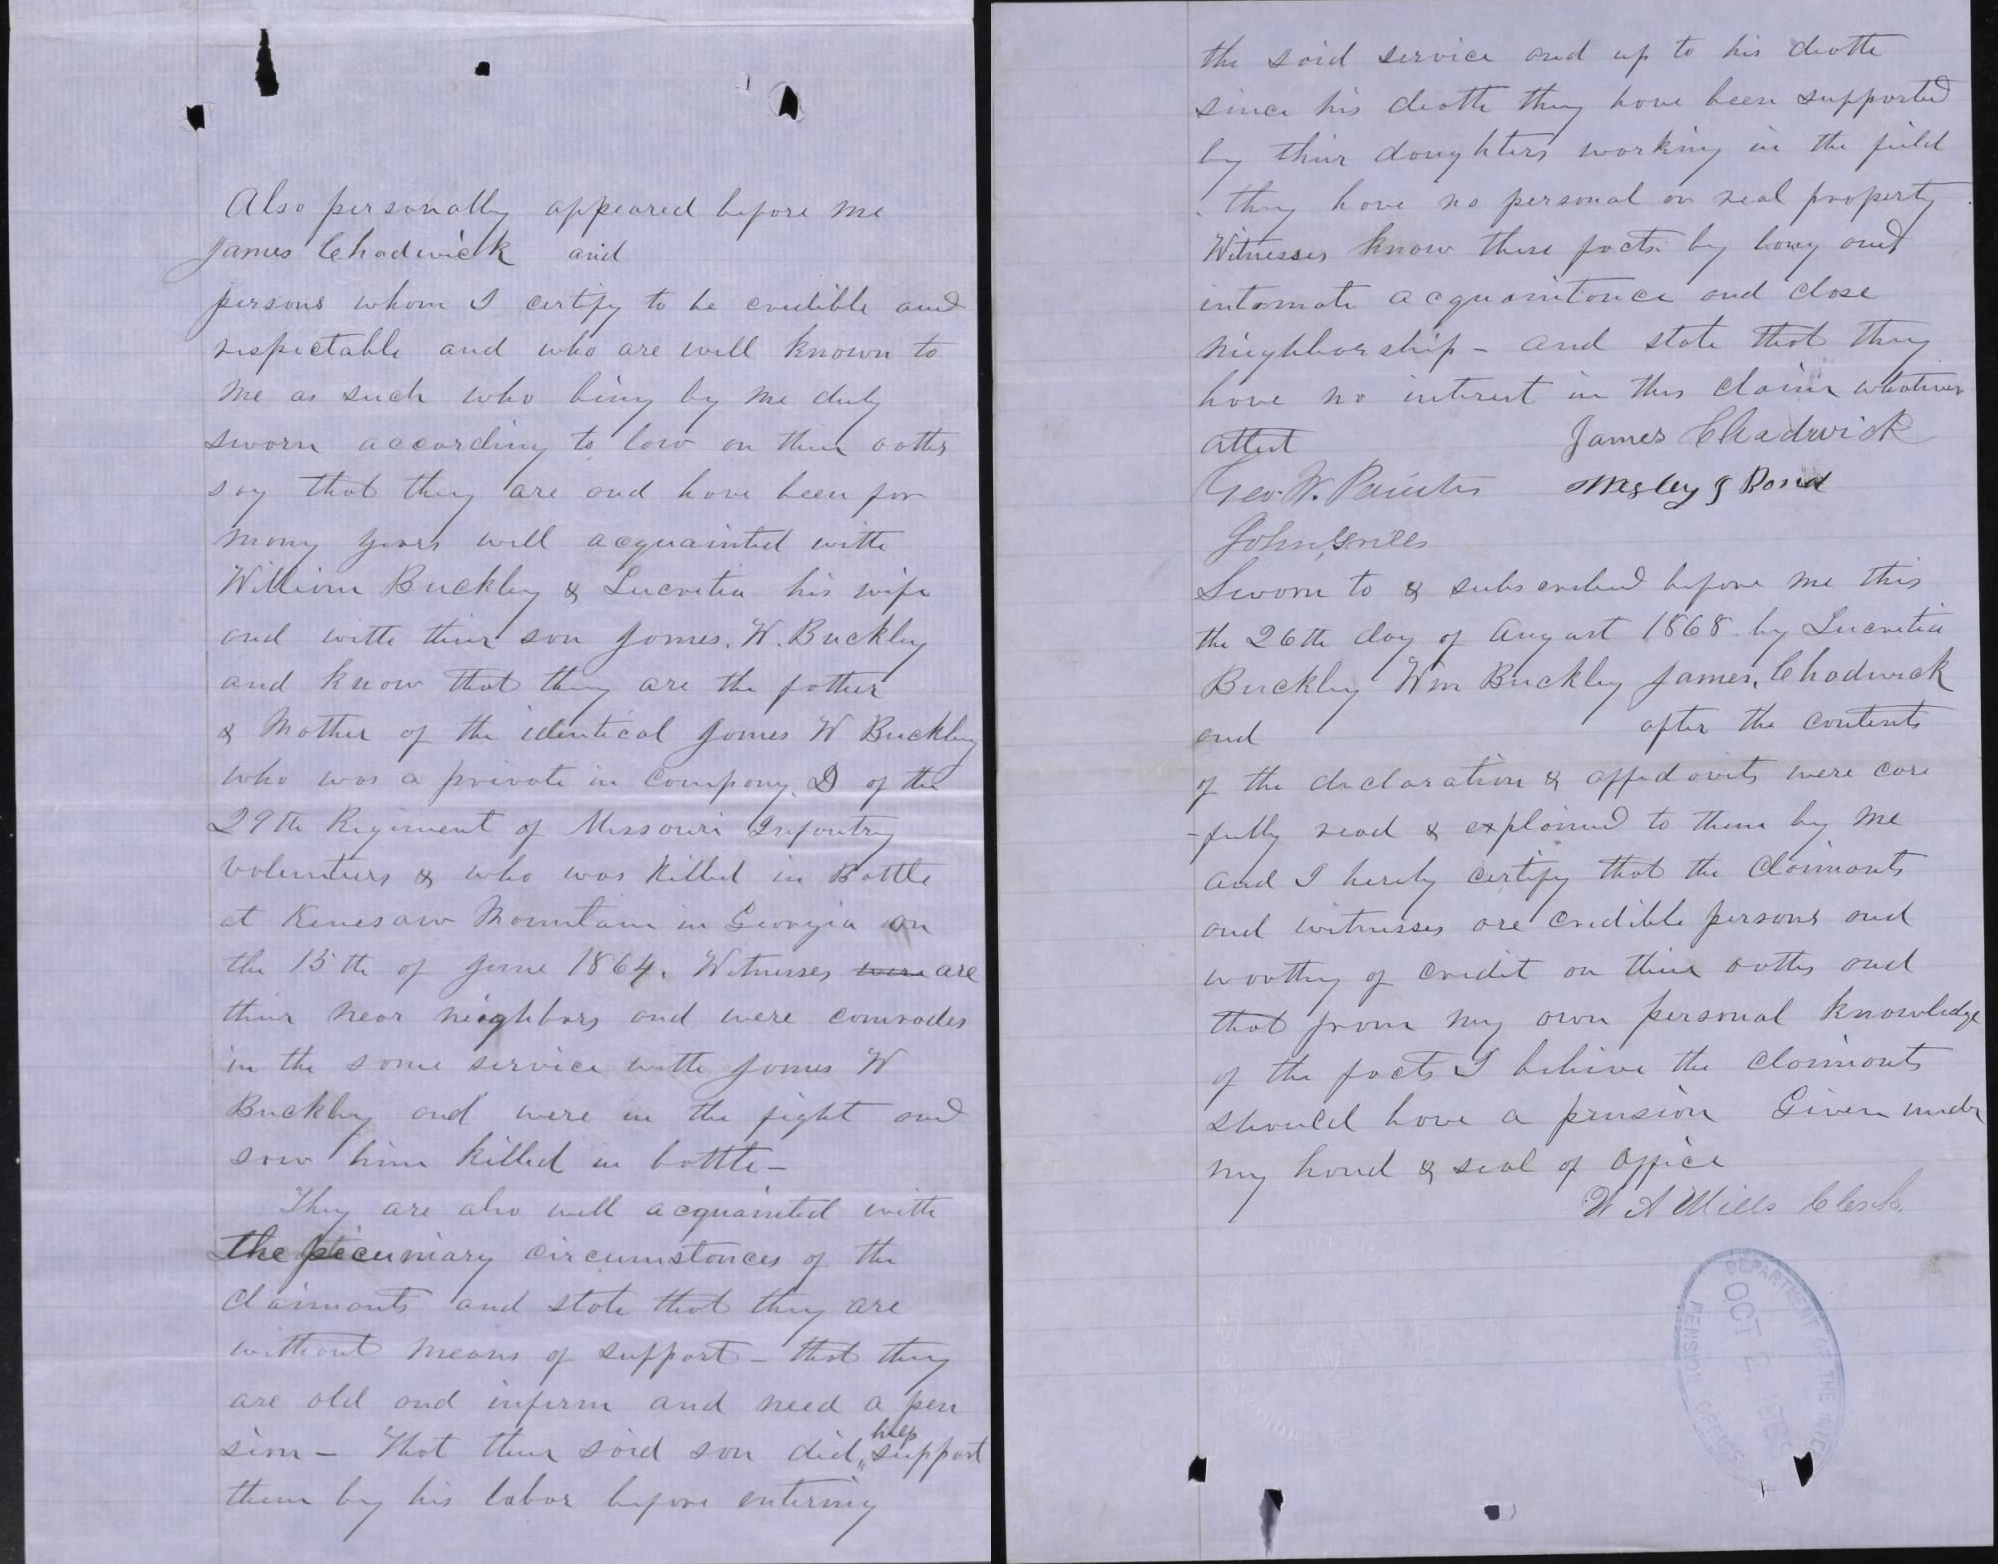 Also personally appeared before me
James Chadwick and
persons whom I certify to be credible and
respectable and who are well known to
me as such who being by me duly
sworn according to law on their oaths
say that they are and have been for
many years well acquainted with
William Buckley & Lucretia his wife
and with their son James. W. Buckley
and know that they are the father
& Mother of the identical James W Buckley
who was a private in Company D of the
29th Regiment of Missouri Infantry
Volunteers & who was killed in Battle
at Kenesaw Mountain in Georgia on
the 15th of June 1864. Witnesses were are
their near neighbors and were comrades
in the same service with James W
Buckley and were in the fight and
saw him killed in battle –
They are also well acquainted with
the pecuniary circumstances of the
claimants and state that they are
without means of support – that they
are old and infirm and need a pen
sion – That their said son did help support
them by his labor before entering
the said service and up to his death
since his death they have been supported
by their daughters working in the field
they have no personal or real property
Witnesses know these facts by long and
intamate acquaintance and close
neighborship – and state that they
have no interest in this claim whatever
attest James Chadwick
Geo. W. Painter Wesley J Bond
John
Sworn to & subscribed before me this
the 26th day of August 1868 by Lucretia
Buckley Wm Buckley James Chadwick
and after the contents
of the declaration & affidavits were care
-fully read & explained to them by me
and I hereby certify that the claimants
and witnesses are credible persons and
worthy of credit on their oaths and
that from my own personal knowledge
of the facts I believe the claimants
should have a pension Given under
my hand & seal of office
W A Mills Clerk.
DEPARTMENT OF THE INTE
OCT 2
PENSION OFFICE